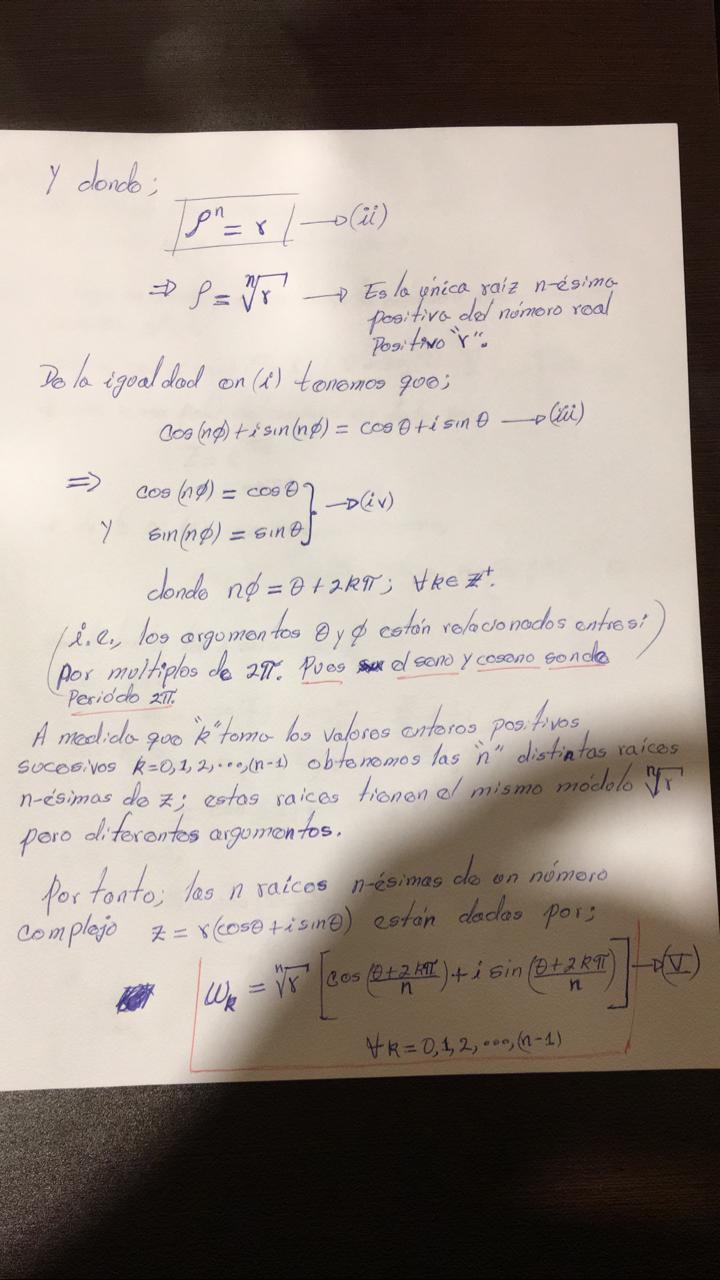 Y donde;
ρⁿ = r → (ii)
⇒ ρ = ⁿ√r → Es la única raíz n-ésima
positiva del número real
Positivo "r".
De la igualdad en (i) tenemos que;
cos(nϕ)+i sin(nϕ) = cosθ+i sinθ → (iii)
⇒ cos(nϕ) = cosθ
Y sin(nϕ) = sinθ } → (iv)
donde nϕ = θ + 2kπ; ∀k∈ℤ⁺.
(i.e., los argumentos θ y ϕ están relacionados entre si;
Por multiplos de 2π. Pues el seno y coseno son de
Periódo 2π.)
A medida que "k" toma los valores enteros positivos
sucesivos k=0,1,2,...,(n-1) obtenemos las "n" distintas raíces
n-ésimas de z; estas raices tienen el mismo módelo ⁿ√r
pero diferentes argumentos.
Por tanto; las n raices n-ésimas de un número
complejo z = r(cosθ+i sinθ) están dadas por;
ω_k = ⁿ√r [cos((θ+2kπ)/n) + i sin((θ+2kπ)/n)] → (V)
∀k=0,1,2,...,(n-1)